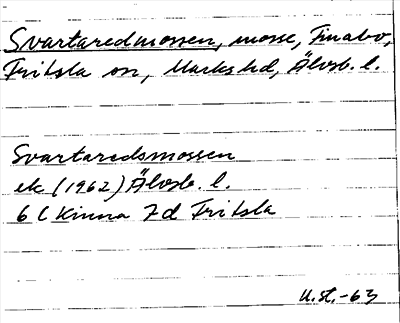 Svartaredmossen, mosse, Finabo,
Fritsla sn, Marks hd, Älvsb. l.
Svartaredsmossen
ek (1962) Älvsb. l.
6 C Kinna 7d Fritsla
U.st.-63